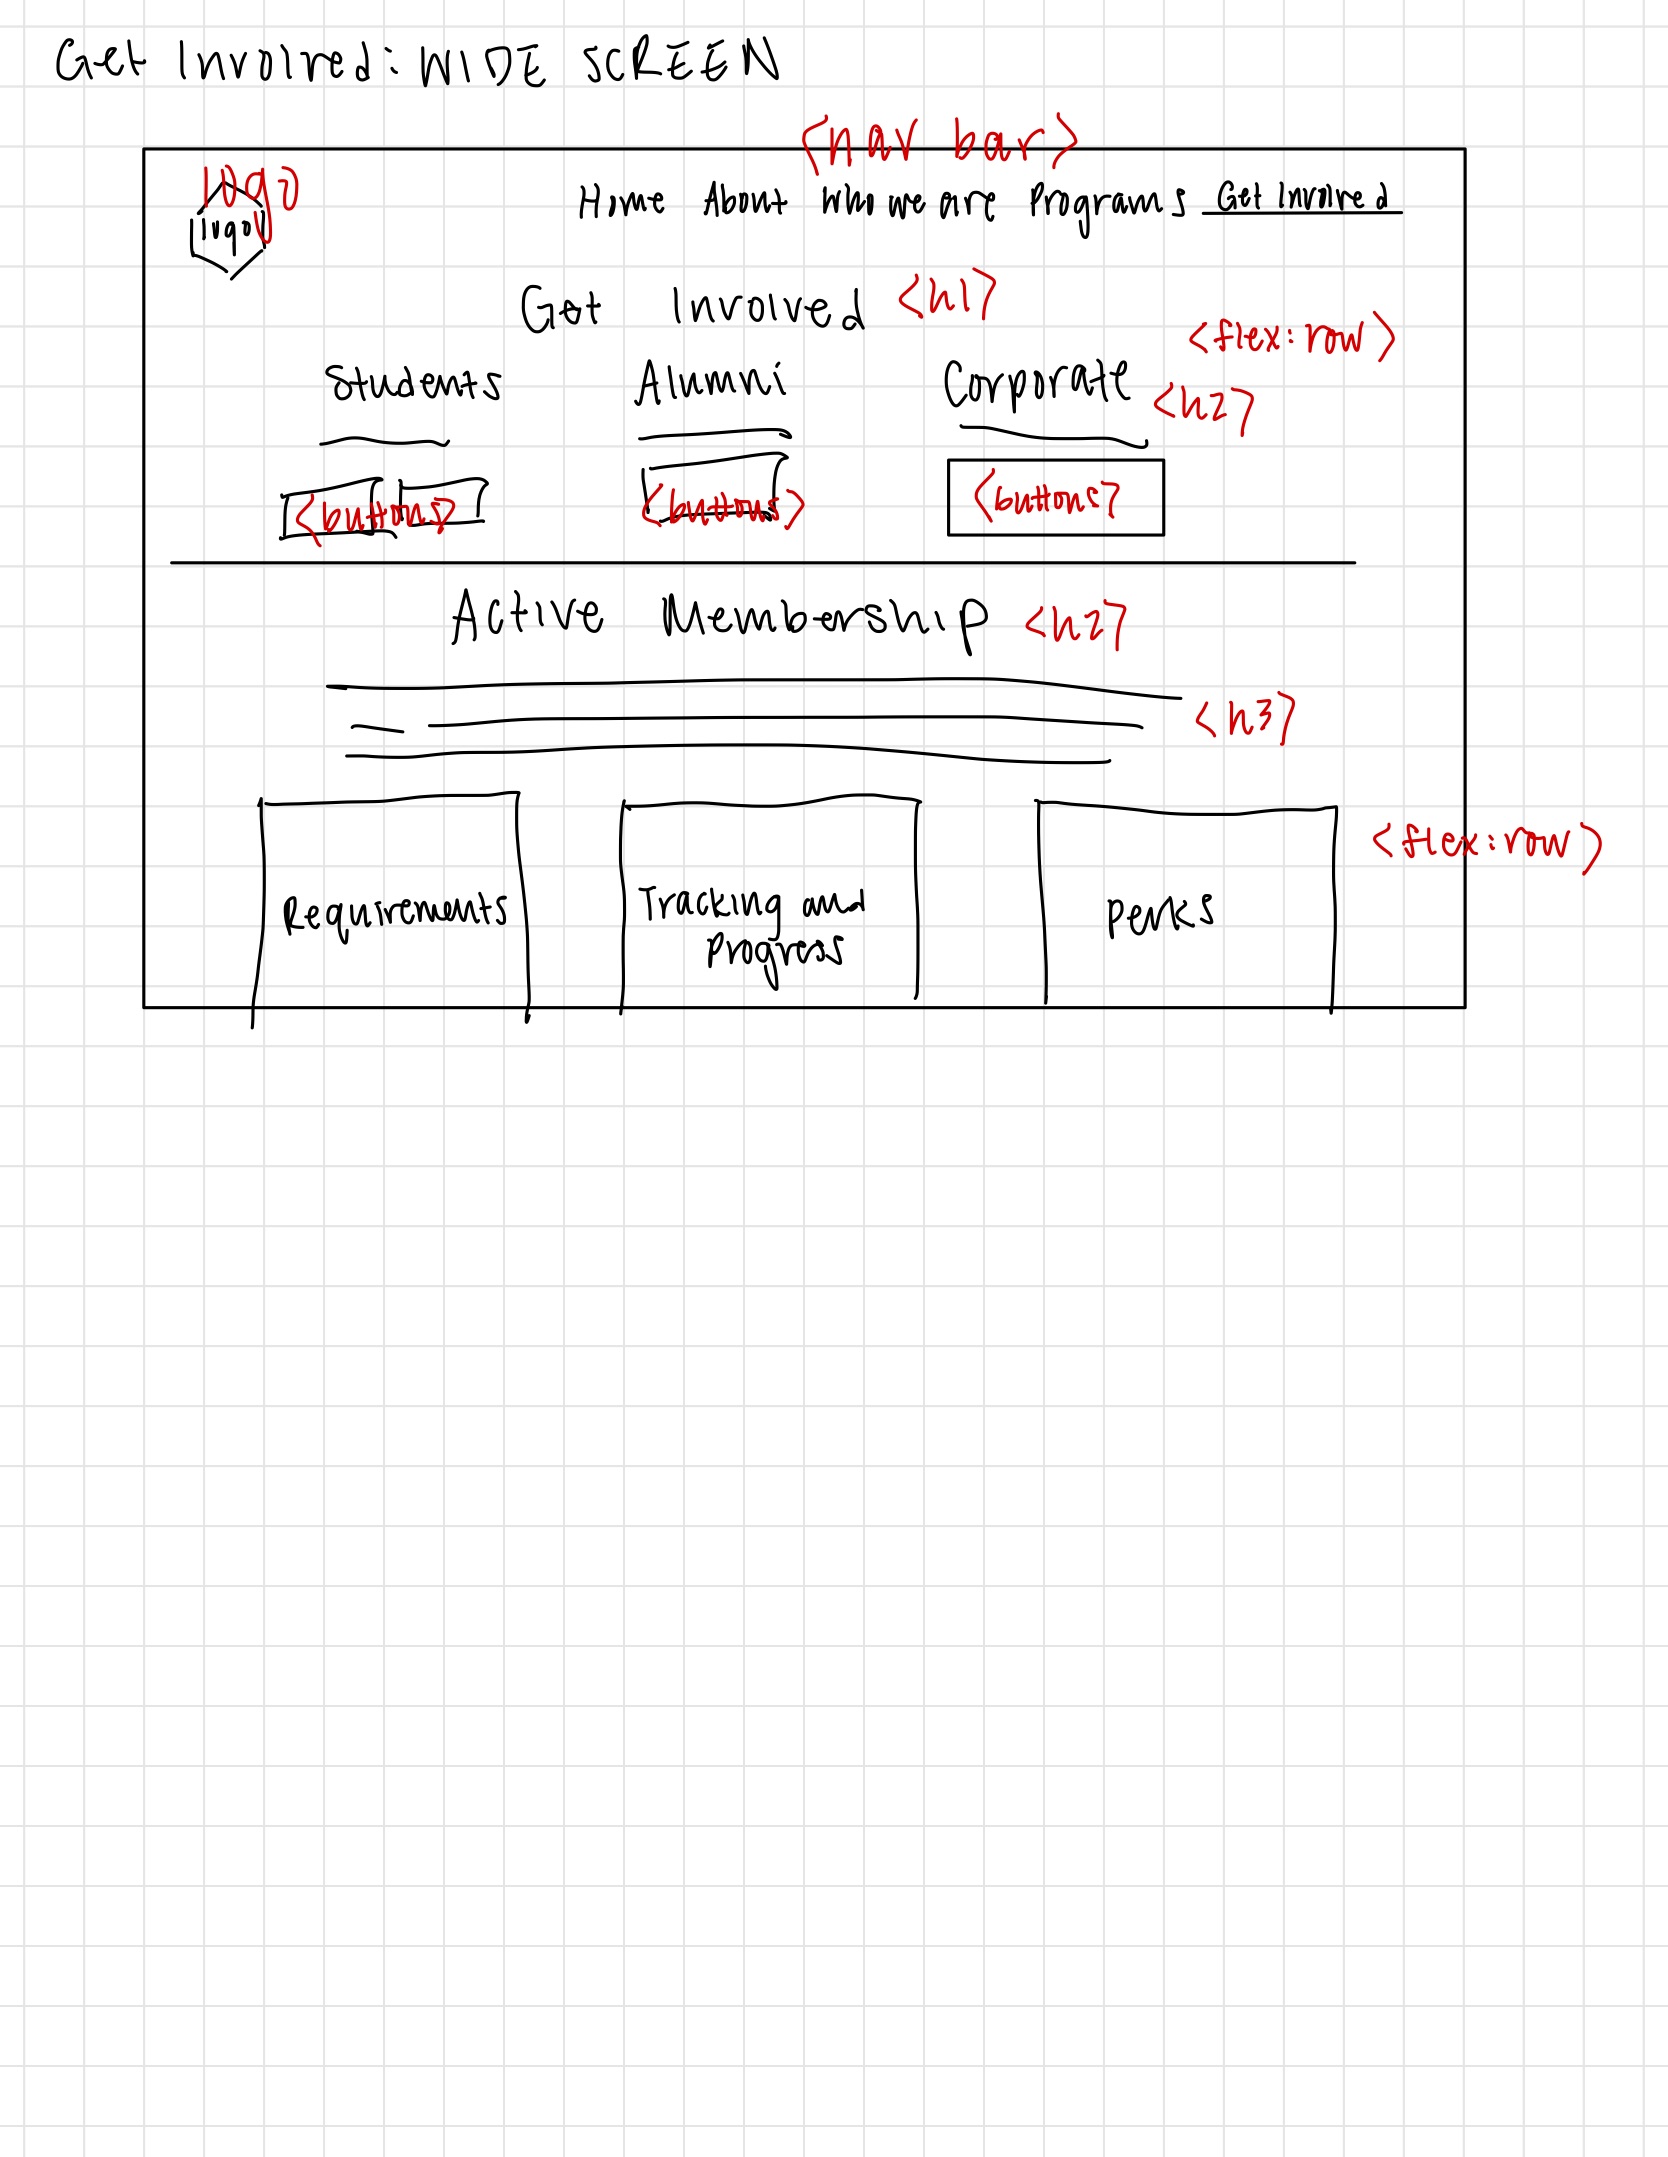 Get Involved: WIDE SCREEN
<nav bar>
logo
logo
Home About Who we are Programs Get Involved
Get Involved <h1>
<flex:row>
Students Alumni Corporate <h2>
<buttons> <buttons> <buttons>
Active Membership <h2>
<h3>
<flex:row>
Requirements Tracking and Progress Perks